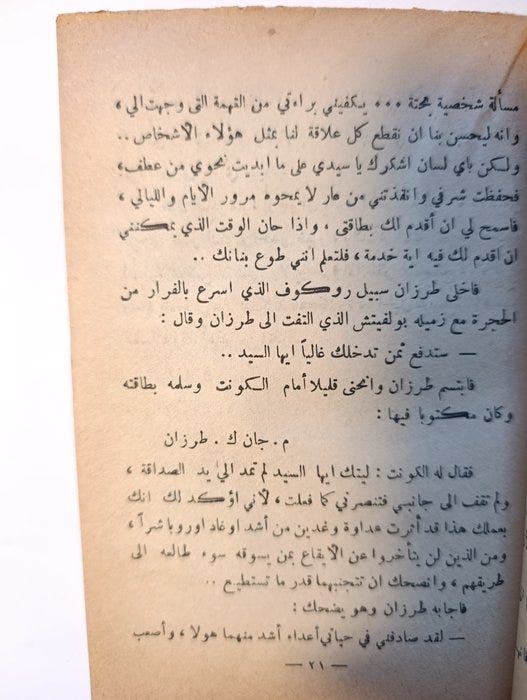 مسألة شخصية بحتة ... يكفيني براءتي من التهمة التى وجهت الي ،
وانه ليحسن بنا ان نقطع كل علاقة لنا بمثل هؤلاء الاشخاص ..
ولكن باي لسان اشكرك يا سيدي على ما ابديت نحوي من عطف،
فحفظت شرفي وانقذتني من عار لا يمحوه مرور الايام والليالي ،
فاسمح لي ان أقدم لك بطاقتى ، واذا حان الوقت الذي يمكننى
ان اقدم لك فيه اية خدمة ، فلتعلم انني طوع بنانك ..
فاخلى طرزان سبيل روكوف الذي اسرع بالفرار من
الحجرة مع زميله بولفيتش الذي التفت الى طرزان وقال :
— ستدفع ثمن تدخلك غالياً ايها السيد ..
فابتسم طرزان وانحنى قليلا أمام الكونت وسلمه بطاقته
وكان مكتوبا فيها :
م . جان ك . طرزان
فقال له الكونت : ليتك ايها السيد لم تمد الي يد الصداقة ،
ولم تقف الى جانبي فتنصرني كما فعلت ، لأني اؤكد لك انك
بعملك هذا قد أثرت عداوة وغدين من أشد اوغاد اوروبا شراً ،
ومن الذين لن يتأخروا عن الايقاع بمن يسوقه سوء طالعه الى
طريقهم ، وانصحك ان تتجنبهما قدر ما تستطيع ..
فاجابه طرزان وهو يضحك :
— لقد صادفني في حياتي أعداء أشد منهما هولا ، وأصعب
— ٢١ —